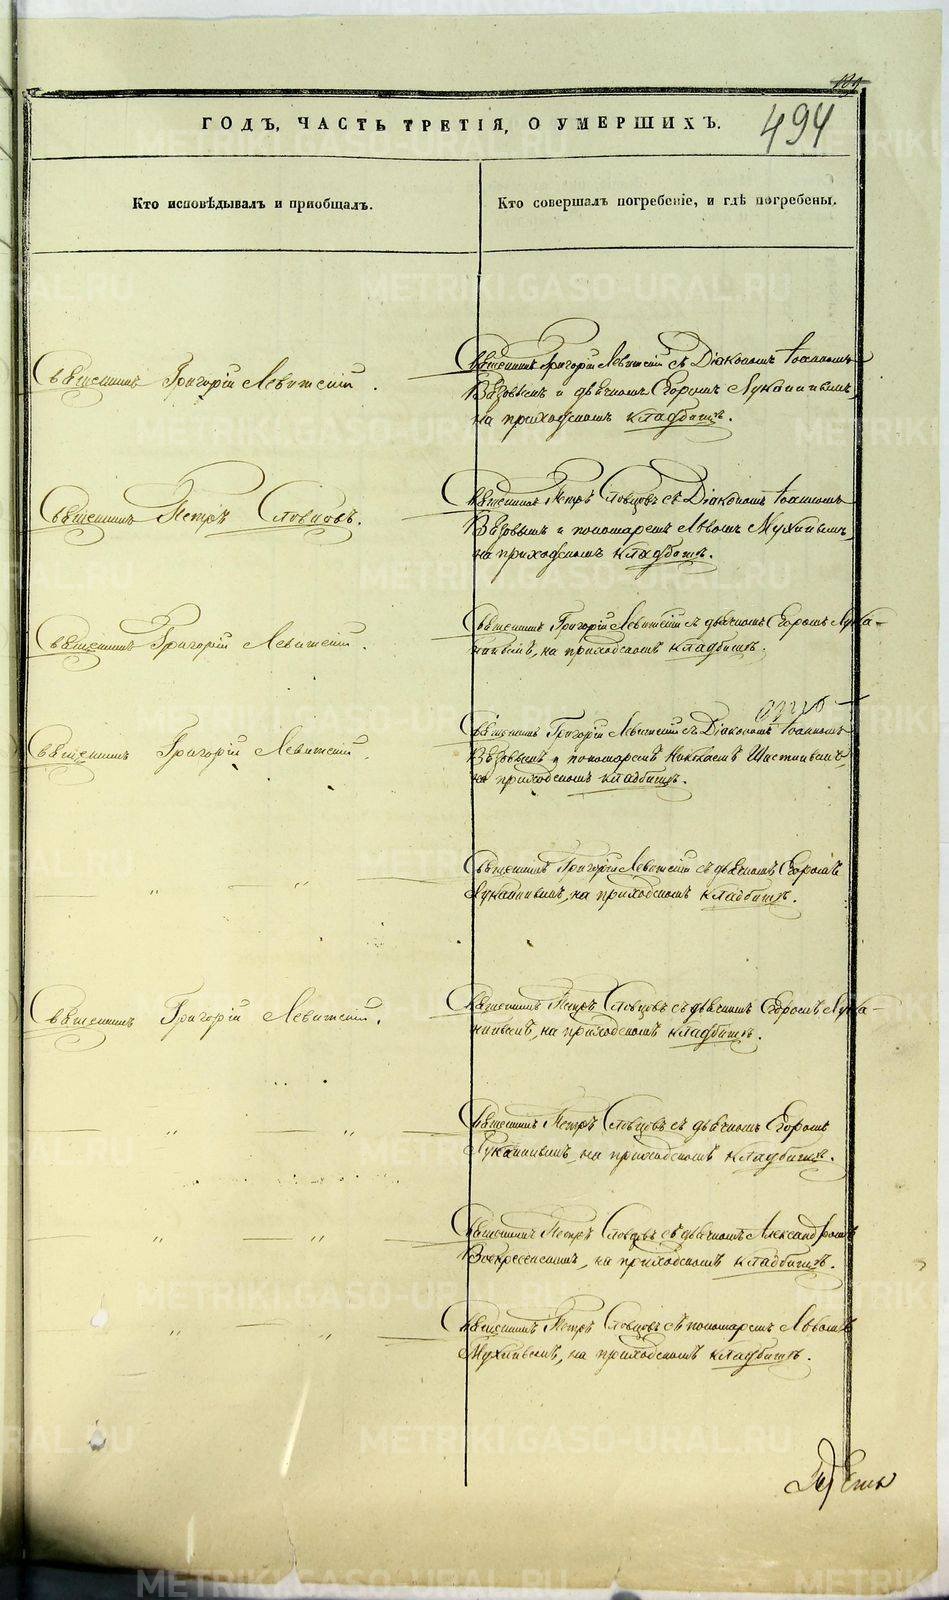 494
ГОДЪ, ЧАСТЬ ТРЕТІЯ, О УМЕРШИХЪ.
Кто исповѣдывалъ и пріобщалъ.
Кто совершалъ погребеніе, и гдѣ погребены.
Священникъ Григорій Левитскій.
Священникъ Григорій Левитскій съ Діакономъ Іоанномъ
и дьячкомъ Егоромъ Луканинымъ,
на приходскомъ кладбищѣ.
Священникъ Петръ Словцовъ.
Священникъ Петръ Словцовъ съ Діакономъ Іоанномъ
и пономаремъ Львомъ Мухинымъ,
на приходскомъ кладбищѣ.
Священникъ Григорій Левитскій.
Священникъ Григорій Левитскій съ дьячкомъ Егоромъ Лука-
нинымъ, на приходскомъ кладбищѣ.
Священникъ Григорій Левитскій.
Священникъ Григорій Левитскій съ Діакономъ Іоанномъ
и пономаремъ
на приходскомъ кладбищѣ.
„ „
Священникъ Григорій Левитскій съ дьячкомъ Егоромъ
Луканинымъ, на приходскомъ кладбищѣ.
Священникъ Григорій Левитскій.
Священникъ Петръ Словцовъ съ дьячкомъ Егоромъ Лука-
нинымъ, на приходскомъ кладбищѣ.
„ „
Священникъ Петръ Словцовъ съ дьячкомъ Егоромъ
Луканинымъ, на приходскомъ кладбищѣ.
„ „
Священникъ Петръ Словцовъ съ дьячкомъ Александромъ
Воскресенскимъ, на приходскомъ кладбищѣ.
„ „
Священникъ Петръ Словцовъ съ пономаремъ Львомъ
Мухинымъ, на приходскомъ кладбищѣ.
METRIKI.GASO-URAL.RU